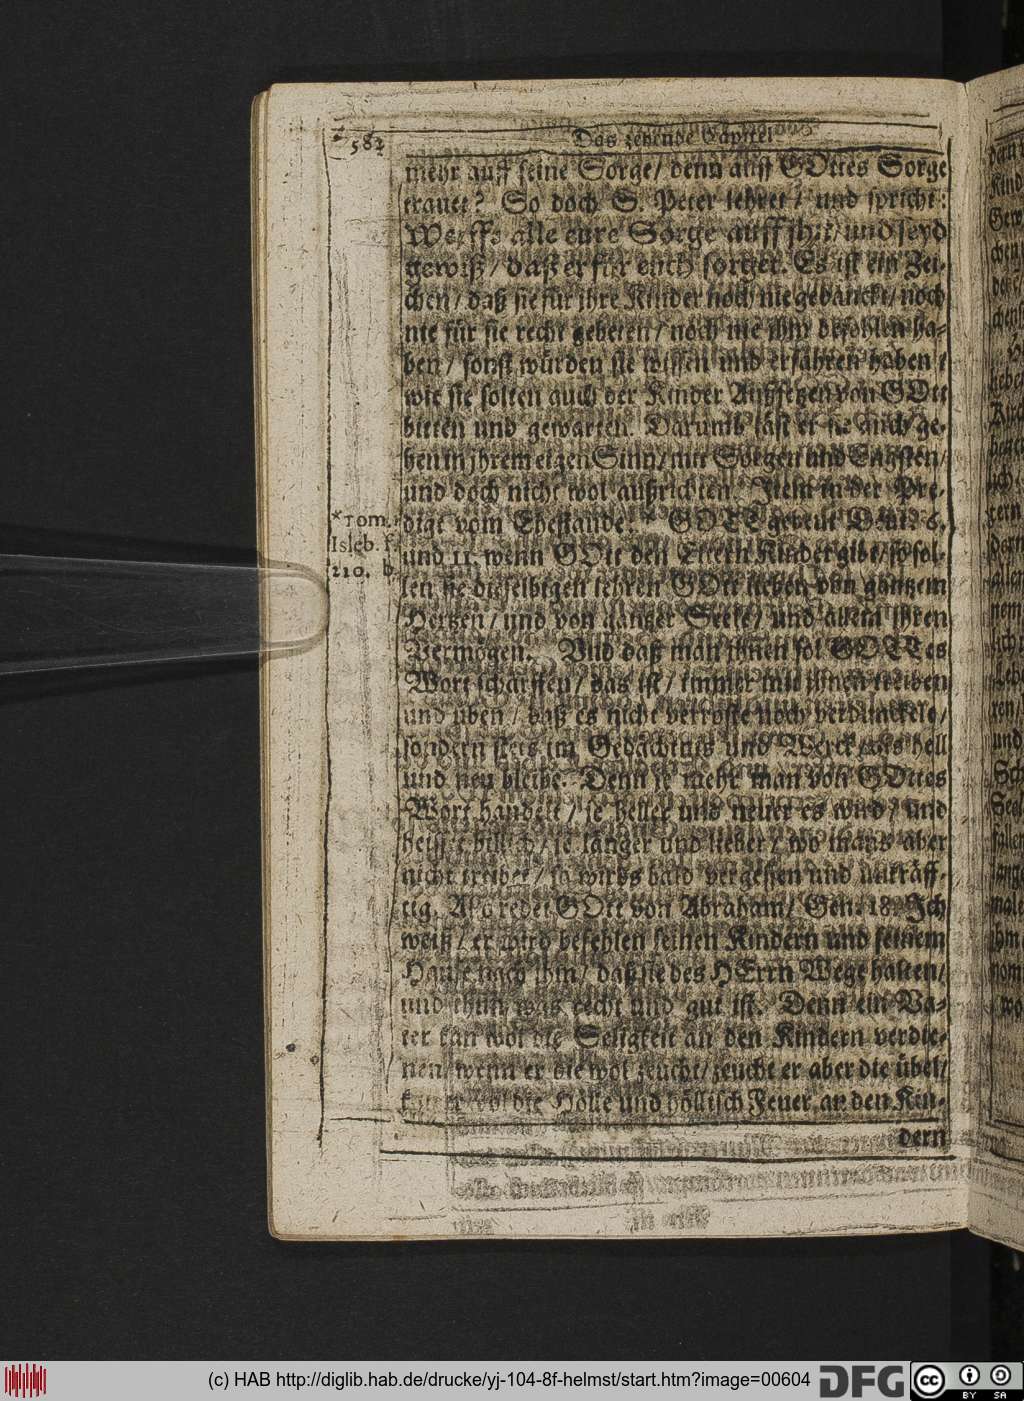 582
Das zehende Capitel
mehr auff seine Sorge / denn auff GOttes Sorge
trauet? So doch S. Peter lehret / und spricht:
Werffe alle eure Sorge auff jhn / und seyd
gewiß / daß er für euch sorget. Es ist ein Zei-
chen / daß sie für jhre Kinder noch nie gedanckt / noch
nie für sie recht gebeten / noch nie jhm befohlen ha-
ben / sonst würden sie wissen und erfahren haben /
wie sie solten auch der Kinder Außsetzen von GOtt
bitten und gewarten. Darumb läst er sie auch ge-
hen in jhrem eigen Sinn / mit Sorgen und Engsten /
und doch nicht wol außrichten. Item in der Pre-
digt vom Ehestande: * GOTT gebeut Deut. 6.
* Tom.
Isleb. f.
210. b
und 11. wenn GOtt den Eltern Kinder gibt / so sol-
len sie dieselbigen lehren GOtt lieben von gantzem
Hertzen / und von gantzer Seele / und allem jhren
Vermögen. Vnd daß man jhnen sol GOTTes
Wort schärffen / das ist / immer mit jhnen treiben
und üben / daß es nicht verroste noch verdunckele /
sondern stets im Gedächtnis und Werck / als hell
und neu bleibe. Denn je mehr man von GOttes
Wort handelt / je heller und neuer es wird / und
heisset billich / je länger und lieber / wo mans aber
nicht treibet / so wirds bald vergessen und unkräff-
tig. Also redet GOtt von Abraham / Gen. 18. Jch
weiß / er wird befehlen seinen Kindern und seinem
Hause nach jhm / daß sie des HErrn Wege halten /
und thun was recht und gut ist. Denn ein Va-
ter kan wol die Seligkeit an den Kindern verdie-
nen wenn er die wol zeucht / zeucht er aber die übel /
wol die Hölle und höllisch Feuer an den Kin-
dern
(c) HAB http://diglib.hab.de/drucke/yj-104-8f-helmst/start.htm?image=00604
DFG
cc
BY SA